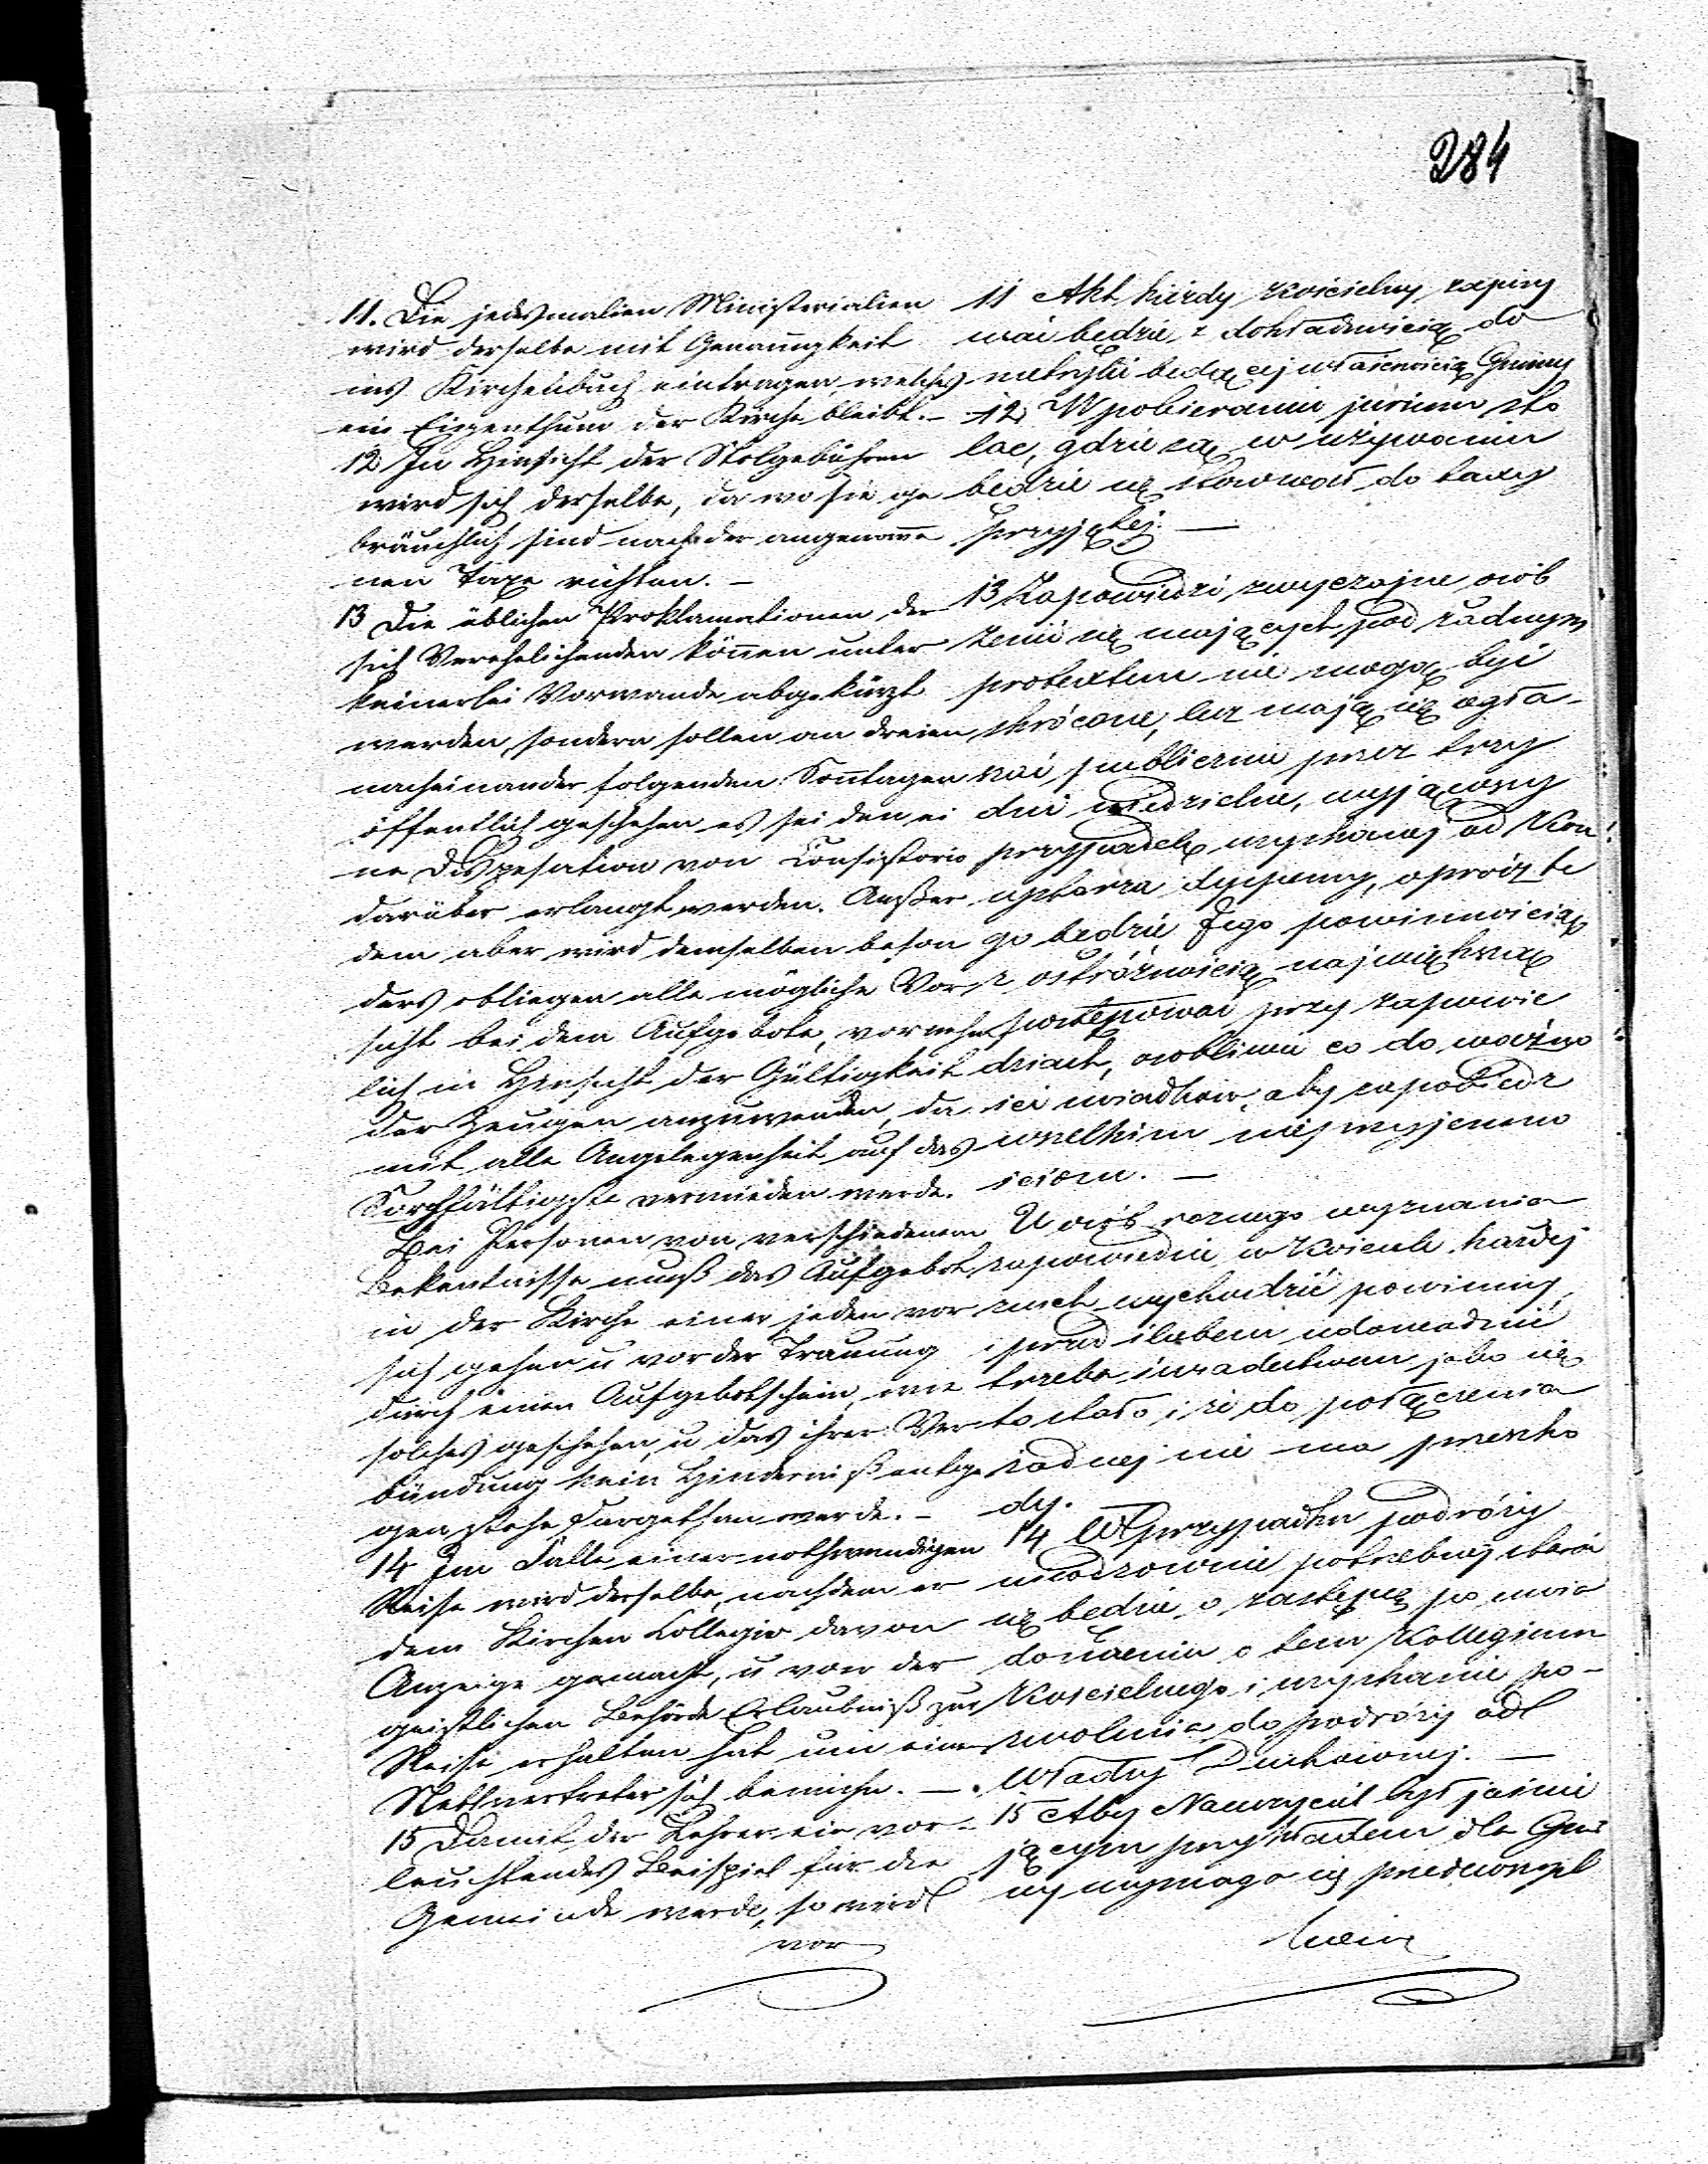 284
11. Die jedesmalien Ministerialien
wird derselbe mit Genauigkeit
ins Kirchenbuch eintragen, welches
ein Eigenthum der Kirche bleibt. –
12 In Hinsicht der Stolgebühren
wird sich derselbe, da wo sie ge
bräuchlich sind nach der angenomme
nen Taxe richten. –
13 Die üblichen Proklamationen der
sich Verehelichenden können unter
keinerlei Vorwande abgekürzt
werden, sondern sollen an dreien
nacheinander folgenden Sontagen
öffentlich geschehen es sei den ei
ne Dispesation von Consistorio
darüber erlangt werden. Außer
dem aber wird demselben beson
ders obliegen alle mögliche Vor
sicht bei dem Aufgebote, vornehm
lich in Hinsicht der Gültigkeit
der Zeugen anzuwenden, da
mit alle Angelegenheit auf das
Sorgfältigste vermieden werde.
Bei Personen von verschiedenem
Bekentnisse muß das Aufgebot
in der Kirche einer jeden vor
sich gehen u vor der Trauung
durch einen Aufgebotschein, wie
solches geschehen, u das ihrer Ver
bündung kein Hinderniß entge
gen stehe dargethan werde. –
14 Im Falle einer nothwendigen
Reise wird derselbe, nachdem er
dem Kirchen Collegio davon
Anzeige gemacht, u von der
geistlichen Behörde Erlaubniß zur
Reise erhalten hat um einen
Stellvertreter sich bemühn. –
15 Damit der Lehrer ein vor-
leuchtendes Beispiel für die
Gemeinde werde, so wird
vor
11 Akt każdy kościelny zapisy
wać będzie z dokładnością do
metryki będącej własnością Gminy
12 W pobieraniu jurium sto
lae, gdzie są w używaniu
będzie się stosował do taxy
przyjętej. –
13 Zapowiedzi zwyczajne osób
żenić się mających pod żadnym
pretextem nie mogą być
skrócone, lecz mają się ogła-
szać publicznie przez trzy
dni niedzielne, wyjąwszy
przypadek uzyskanej od Kon
systorza dyspensy, oprócz te
go będzie Jego powinnością
z ostrożnością największą
postępować przy zapowie
dziach, osobliwie co do ważno
ści świadków, aby zapobiedz
wszelkim nieprzyjemno
ściom. –
U osób roznego wyznania
zapowiedzie w Kosciele każdej
z nich wychodzić powinny,
i przed ślubem udowadnić
trzeba świadectwem jako się
to stało, i że do połączenia
żadnej nie ma przeszko
dy.
14 W przypadku podróży
nieodzownie potrzebnej starać
się będzie o zastępcę po uwia
domieniu o tem Kollegium
Koscielnego i uzyskanie po-
zwolenia do podróży od
Władzy Duchownej. –
15 Aby Nauczyciel był jaśnie
jącym przykładem dla Gmi
ny wymaga się przedewszyst
kiem